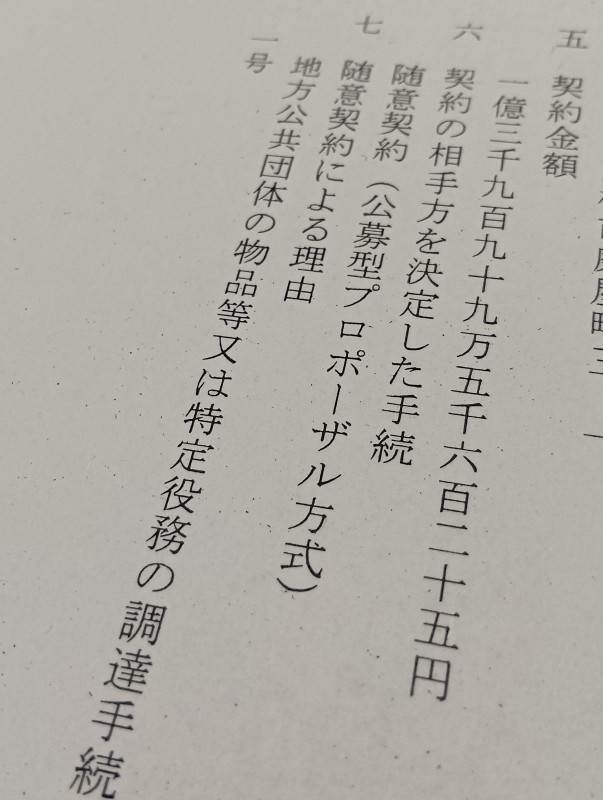 五 契約金額
一億三千九百九十九万五千六百二十五円
六 契約の相手方を決定した手続
随意契約（公募型プロポーザル方式）
七 随意契約による理由
地方公共団体の物品等又は特定役務の調達手続
一号